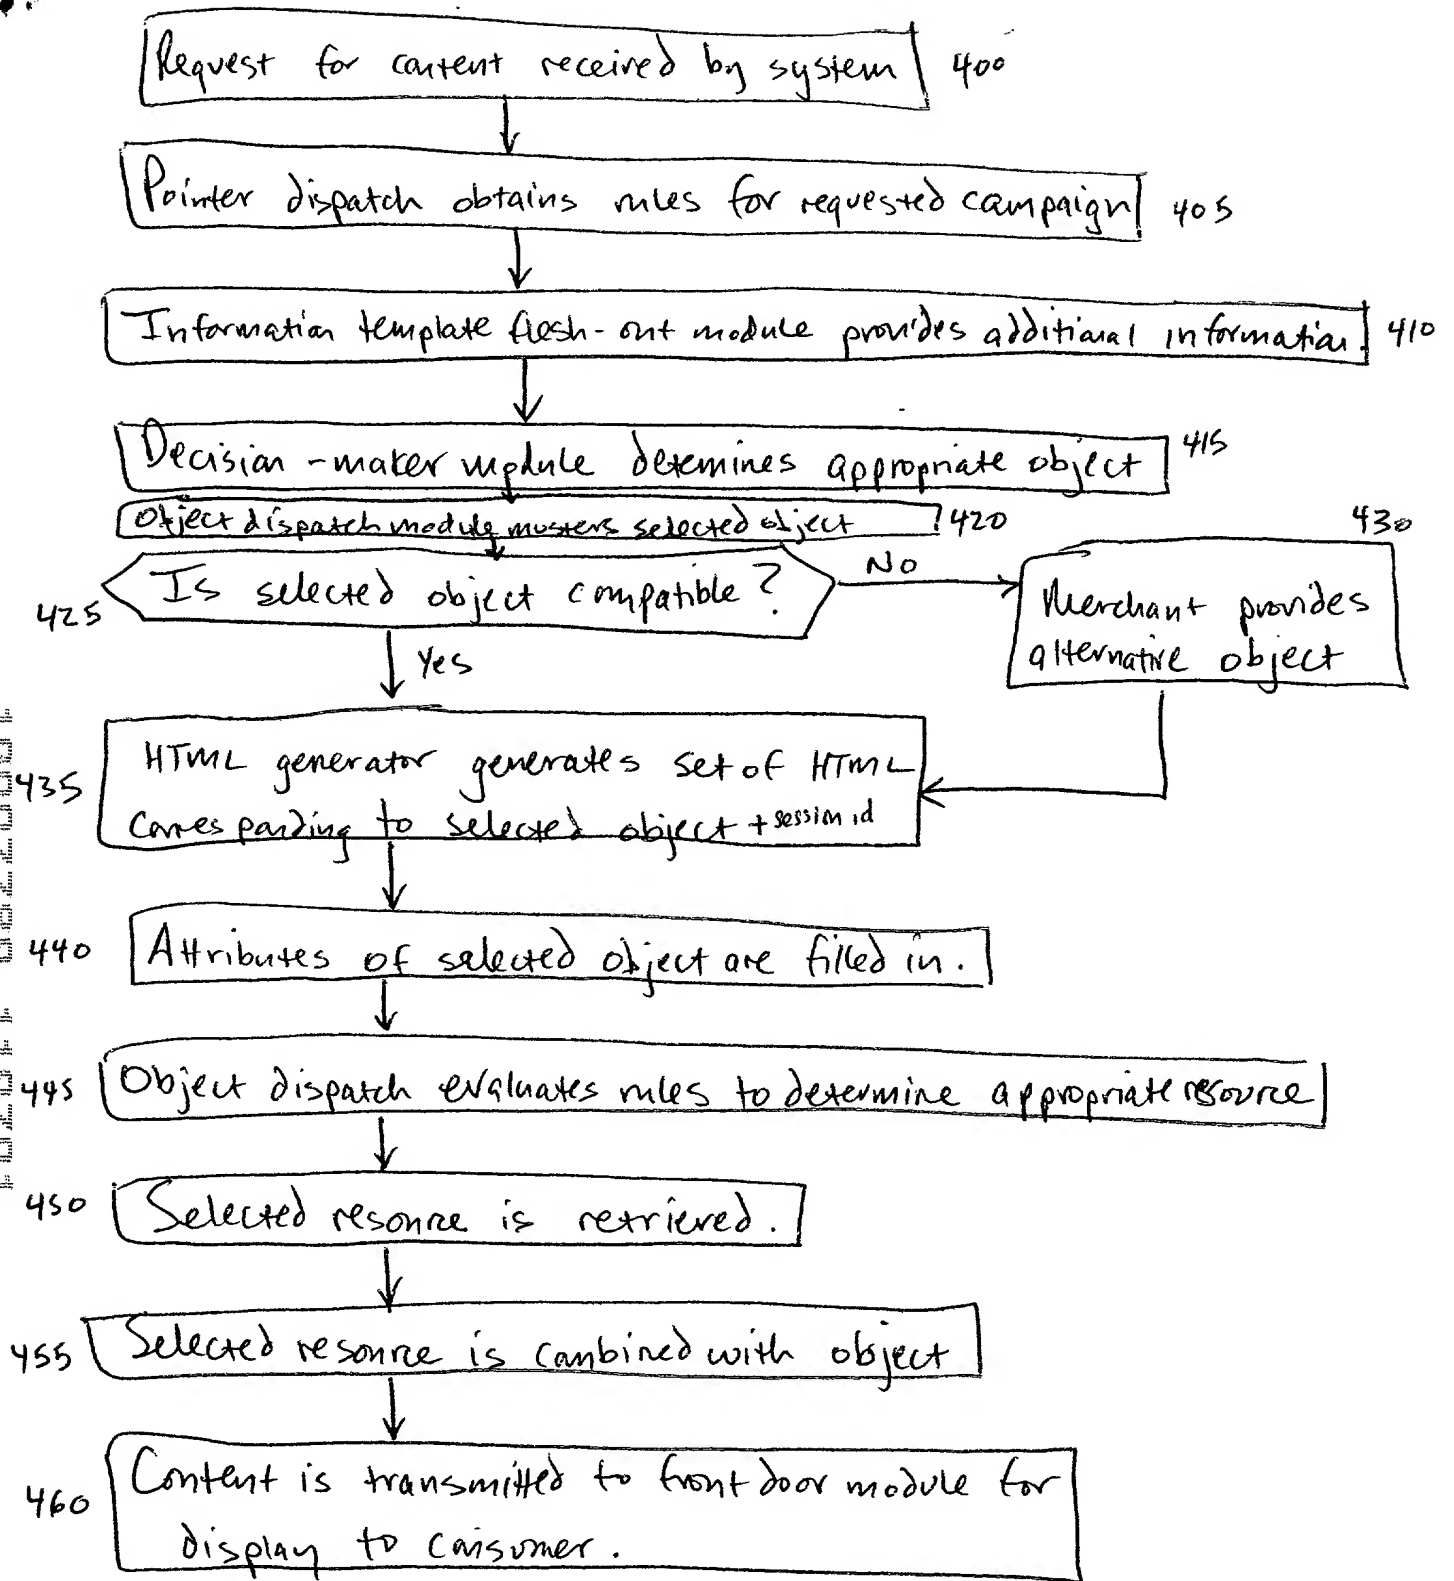 Request for content received by system 400
Pointer dispatch obtains rules for requested campaign 405
Information template flesh-out module provides additional information. 410
Decision-maker module determines appropriate object 415
Object dispatch module musters selected object 420
430
Is selected object compatible?
No
425
Merchant provides
alternative object
Yes
435
HTML generator generates set of HTML
corresponding to selected object + session id
440 Attributes of selected object are filled in.
445 Object dispatch evaluates rules to determine appropriate resource
450 Selected resource is retrieved.
455 Selected resource is combined with object
460
Content is transmitted to front door module for
display to consumer.